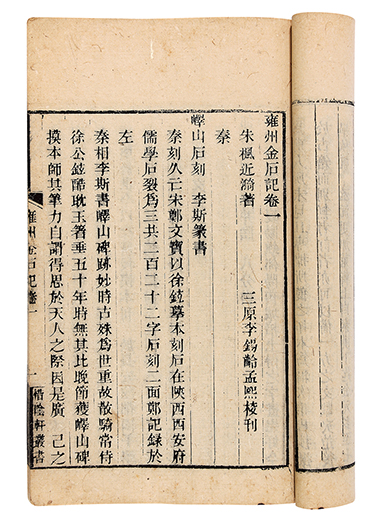 雍州金石記卷一
朱楓近漪著　三原李錫齡孟熙校刊
秦
嶧山石刻　李斯篆書
秦刻久亡宋鄭文寶以徐鉉摹本刻石在陝西西安府
儒學石裂爲三共二百二十二字石刻二面鄭記錄於
左
秦相李斯書嶧山碑跡妙時古殊爲世重故散騎常侍
徐公鉉酷耽玉箸垂五十年時無其比晚節獲嶧山碑
摸本師其筆力自謂得思於天人之際因是廣己之
雍州金石記卷一
一
惜陰軒叢書